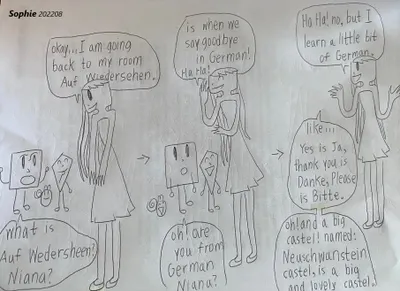 Sophie 202208
okay... I am going
back to my room
Auf Wiedersehen.
what is
Auf Wedersheen?
Niana?
is when we
say goodbye
in German!
Ha Ha!
oh! are
you from
German
Niana?
Ha Ha! no, but I
learn a little bit
of German.
like...
Yes is Ja,
thank you is
Danke, Please
is Bitte.
oh! and a big
castel! named:
Neuschwanstein
castel, is a big
and lovely castel!